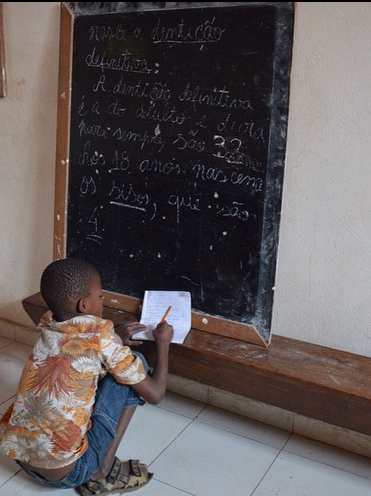 nasce a dentição
definitiva:
A dentição definitiva
é a do adulto e dura
para sempre, são 32
Aos 18 anos nascem
os sisos, que são
4